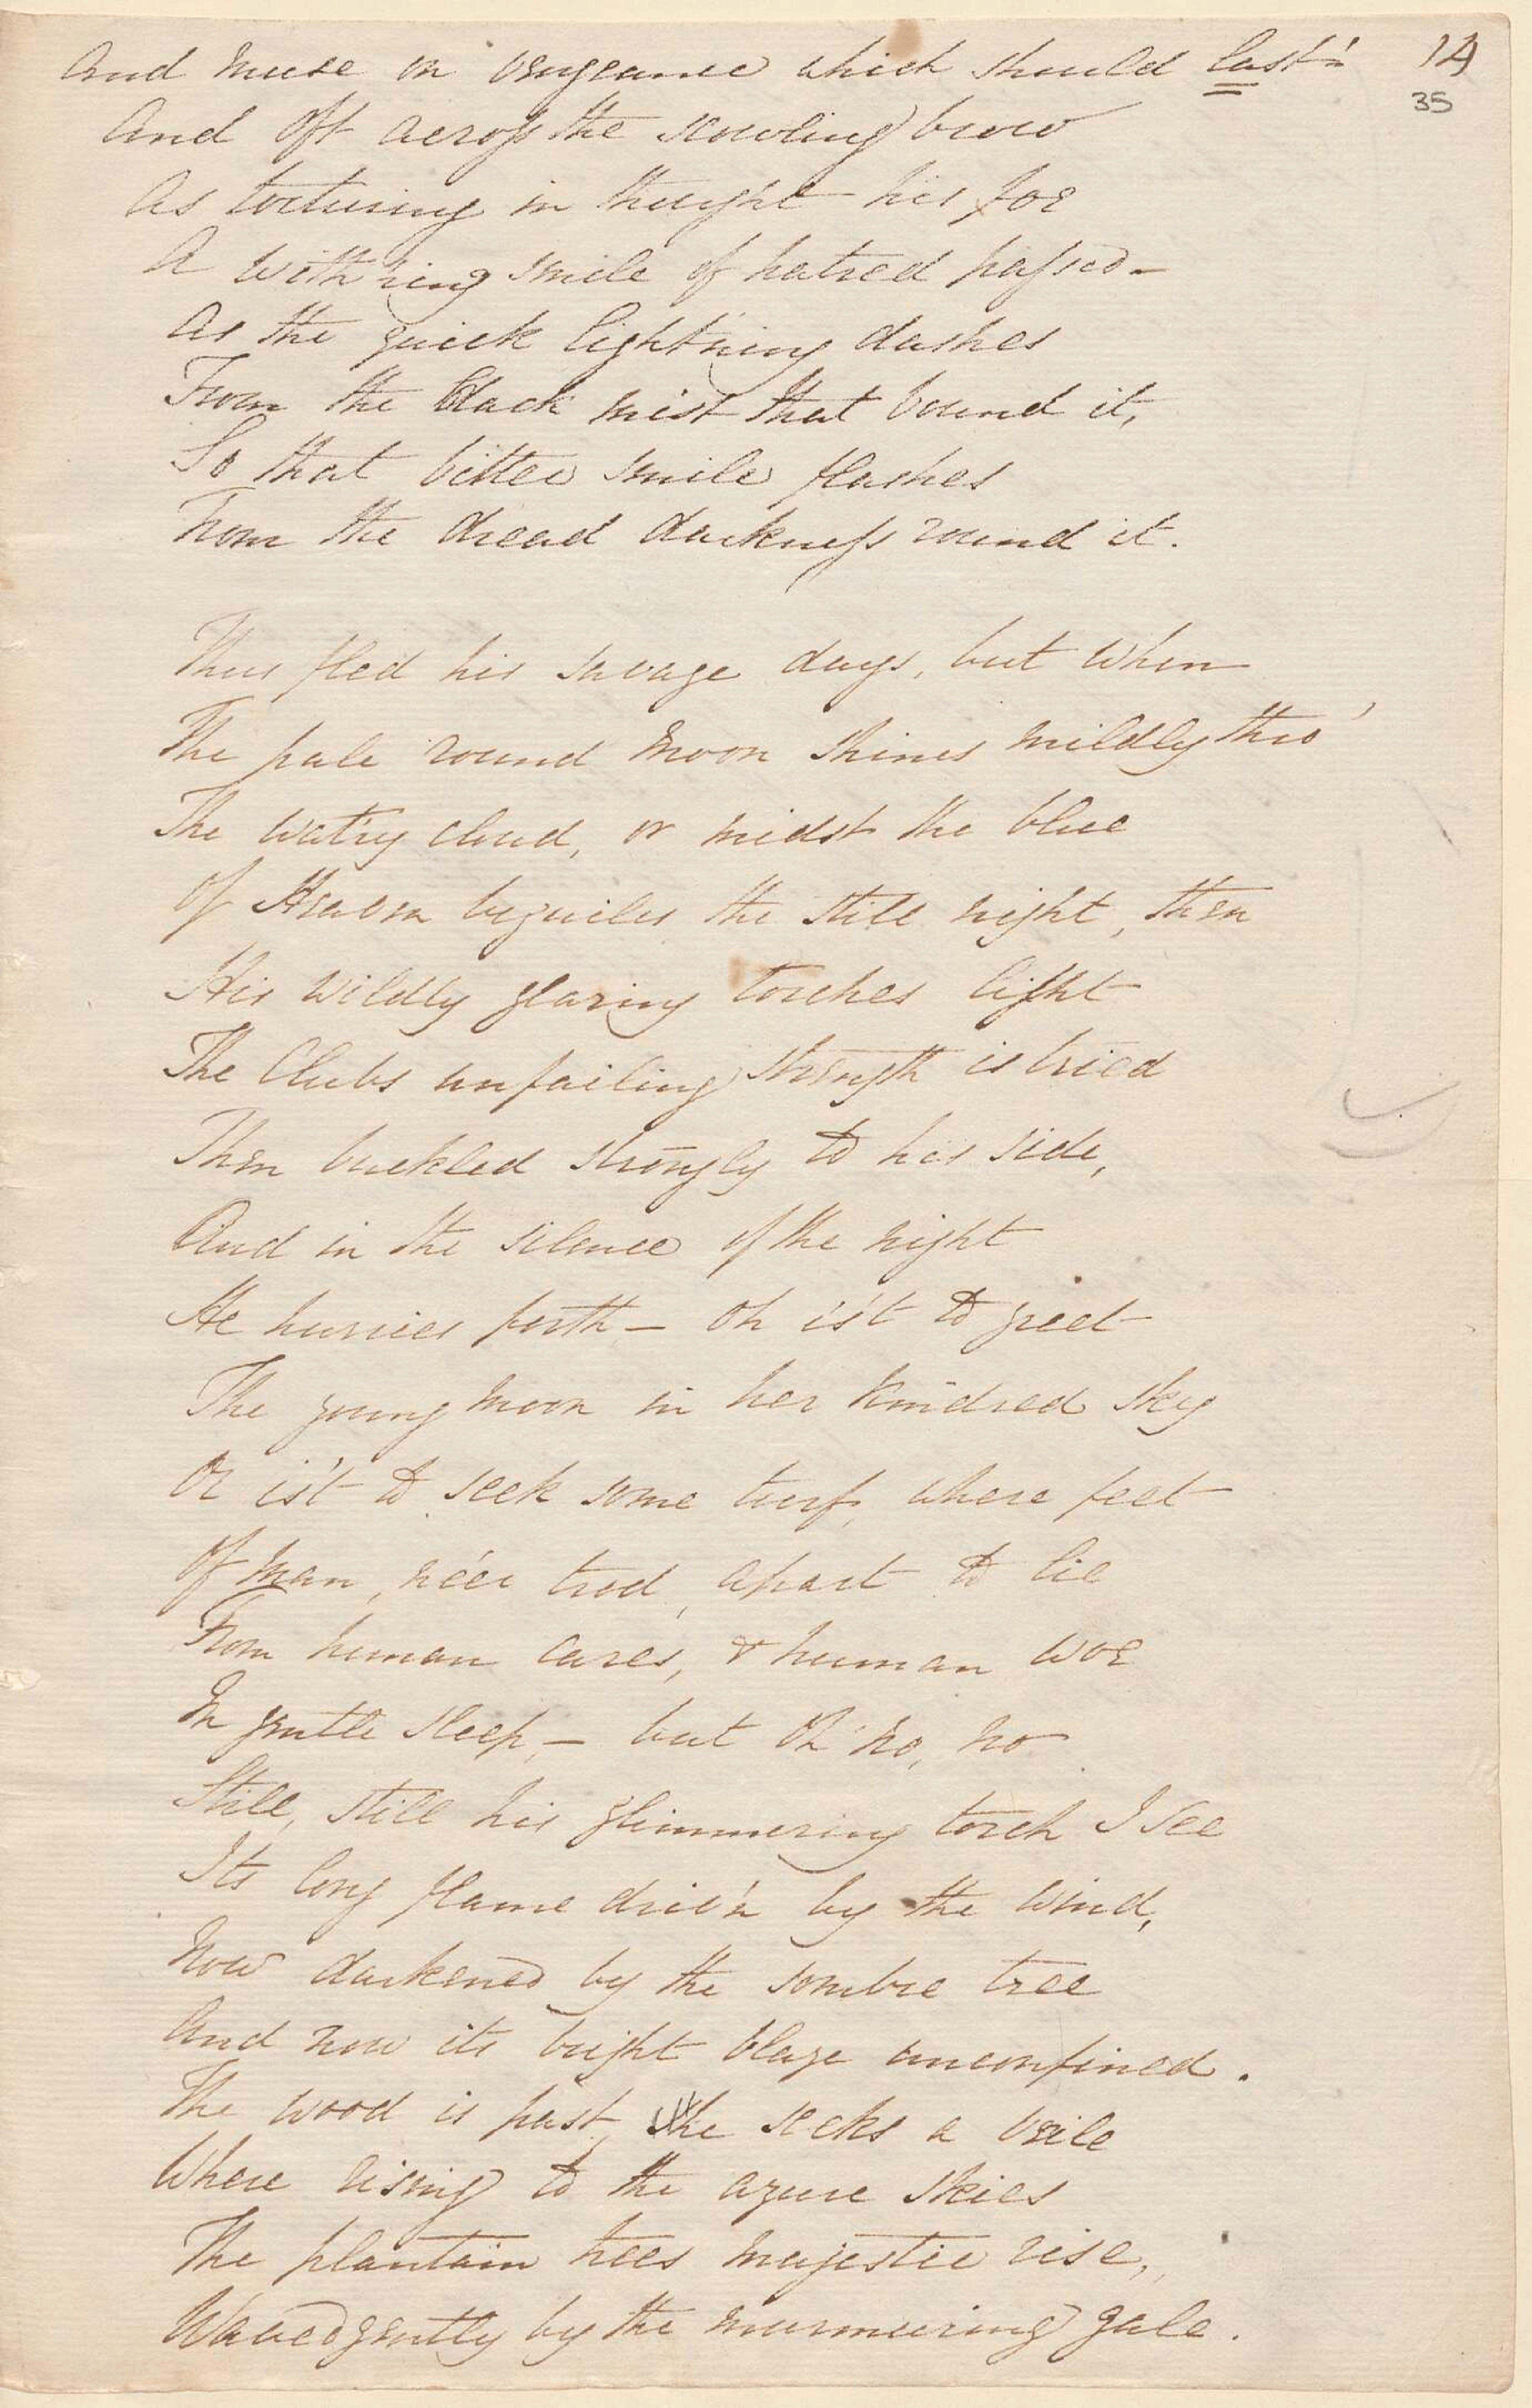 And muse on vengeance which should last! 14
35
And oft across the scowling brow
As torturing in thought his foe
A with'ring smile of hatred passed—
As the quick light'ning dashes
From the black mist that bound it,
So that bitter smile flashes
From the dread darkness round it.
Thus fled his savage days, but when
The pale round moon shines mildly thro'
The wat'ry cloud, or midst the blue
Of Heaven beguiles the still night, then
His wildly glaring torches light
The Clubs unfailing strength is tried
Then buckled strongly to his side,
And in the silence of the night
He hurries forth — Oh is't to greet
The young moon in her kindred sky
Or is't to seek some turf, where feet
Of man, ne'er trod, apart to lie
From human cares, & human woe
In gentle sleep, — but Oh no, no
Still, still his glimmering torch I see
Its long flame driv'n by the wind,
Now darkened by the sombre tree
And now its bright blaze unconfined.
The wood is past, he seeks a vale
Where rising to the azure skies
The plantain trees majestic rise,
Waved gently by the murmuring gale.